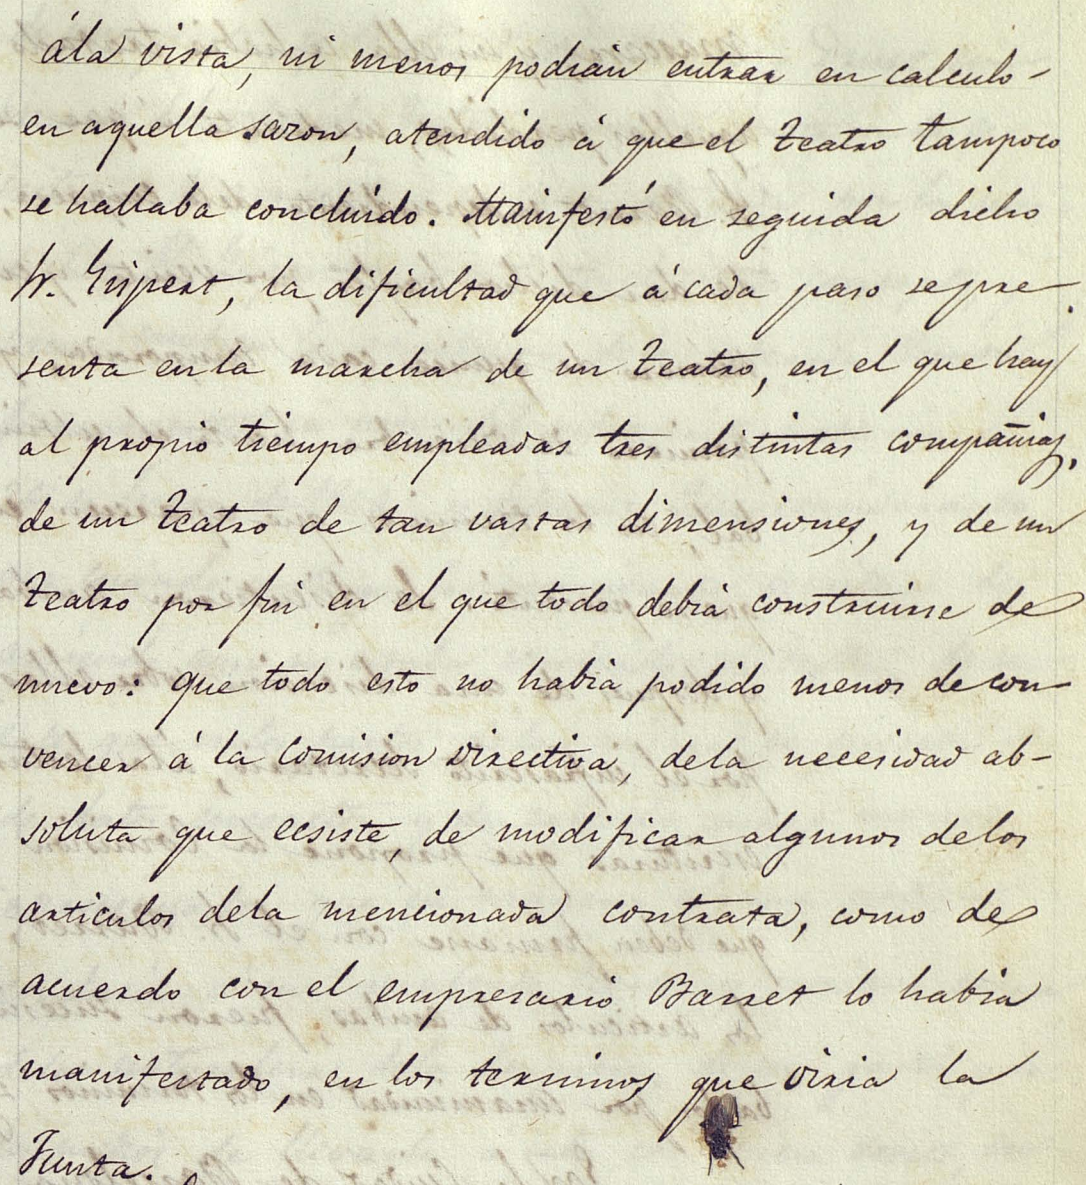 á la vista, ni menos podrian entrar en calculo-
en aquella sazon, atendido á que el teatro tampoco
se hallaba concluido. Manifestó en seguida dicho
Sr. Gispert, la dificultad que á cada paso se pre-
senta en la marcha de un teatro, en el que hay
al propio tiempo empleadas tres distintas compañias,
de un teatro de tan vastas dimensiones, y de un
teatro por fin en el que todo debia construirse de
nuevo: que todo esto no habia podido menos de con-
vencer á la Comision Directiva, dela necesidad ab-
soluta que ecsiste, de modificar algunos delos
articulos dela mencionada contrata, como de
acuerdo con el empresario Barret lo habia
manifestado, en los terminos que viria la
Junta.